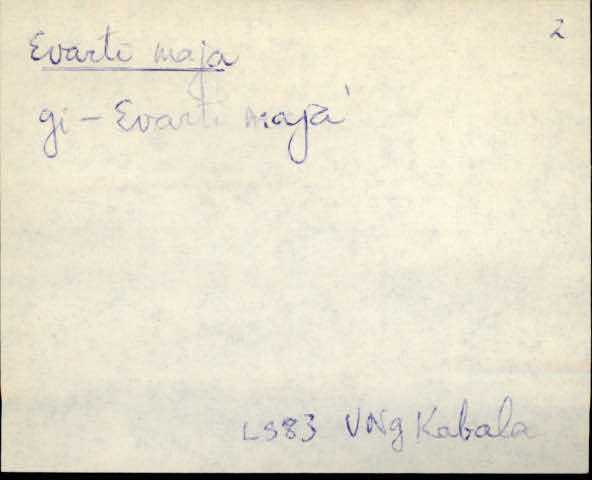 2
Evarti maja
gi - Evarti majja'
LS83 VNg Kabala